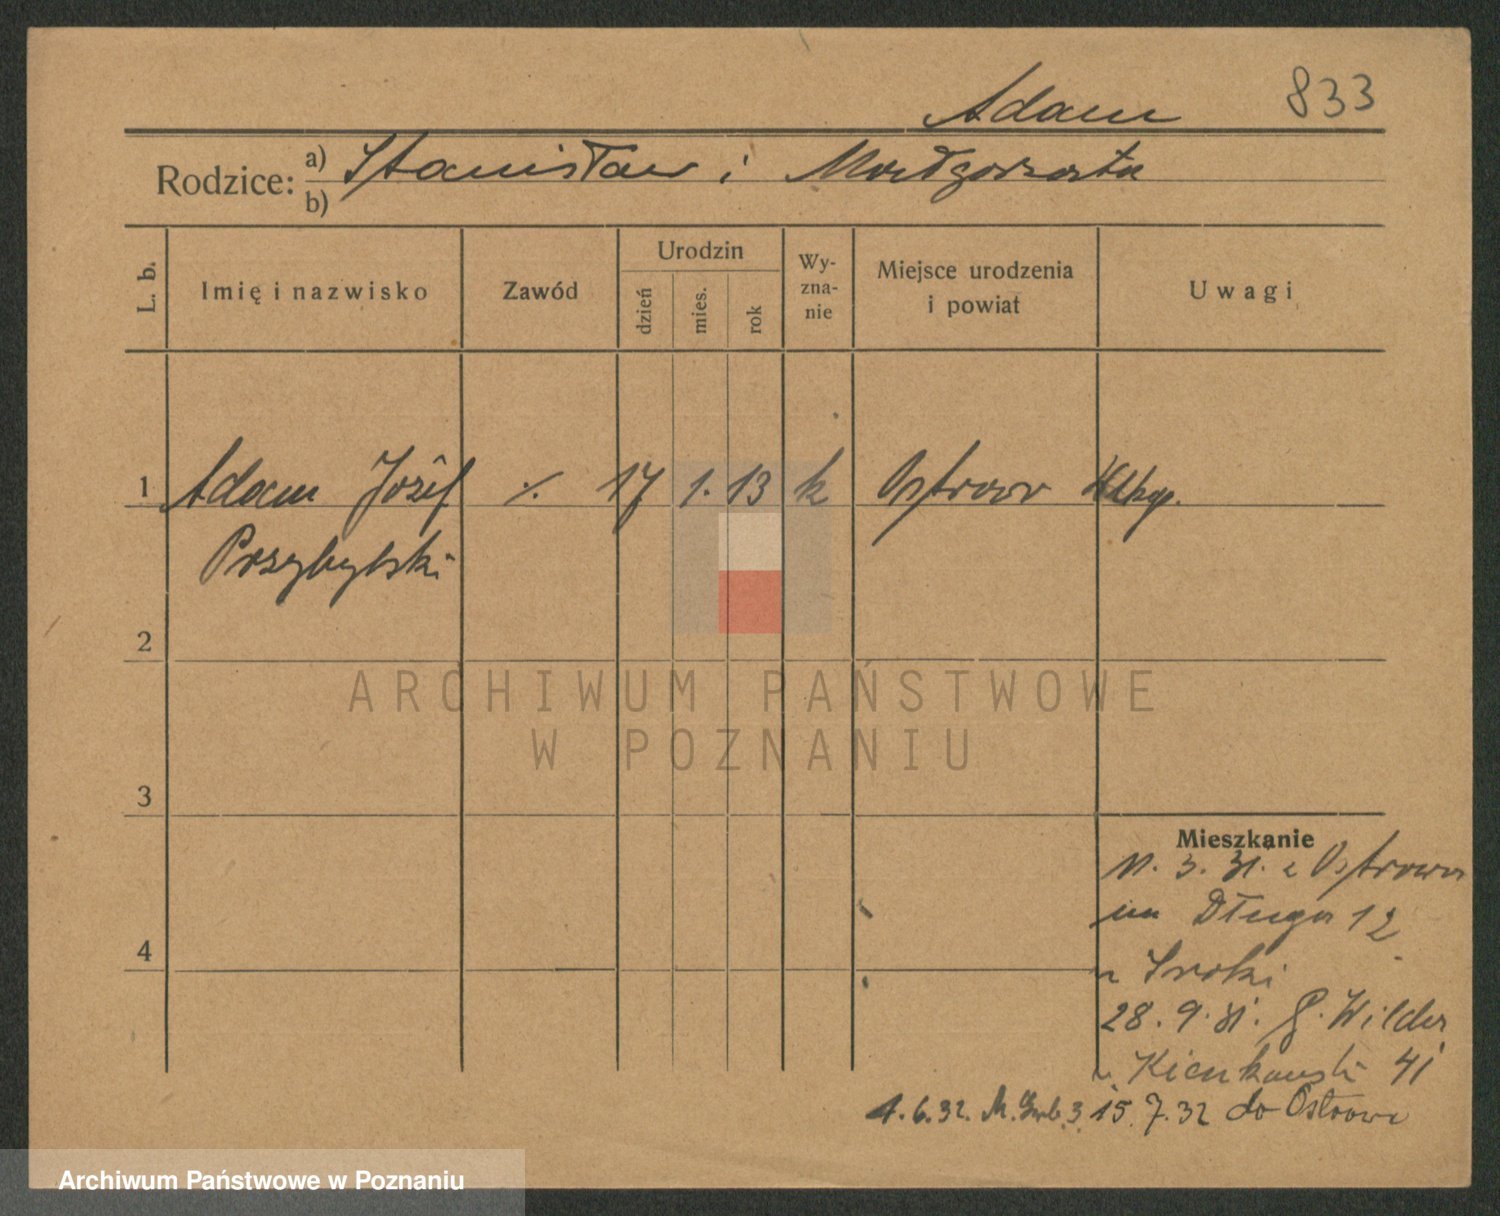 Adam 833
Rodzice: a) Stanisław i Małgorzata
b)
L. b. Imię i nazwisko Zawód Urodzin dzień mies. rok Wy-zna-nie Miejsce urodzenia i powiat Uwagi
1 Adam Józef ./. 17 1. 13 k Ostrow Wlkp.
Przybylski
2
ARCHIWUM PAŃSTWOWE
W POZNANIU
3
Mieszkanie
11. 3. 31. z Ostrowa
Długa 12
4
28. 9. 31. G. Wilda
41
4. 6. 32. M. 3 15. 7. 32 do Ostrowa
Archiwum Państwowe w Poznaniu